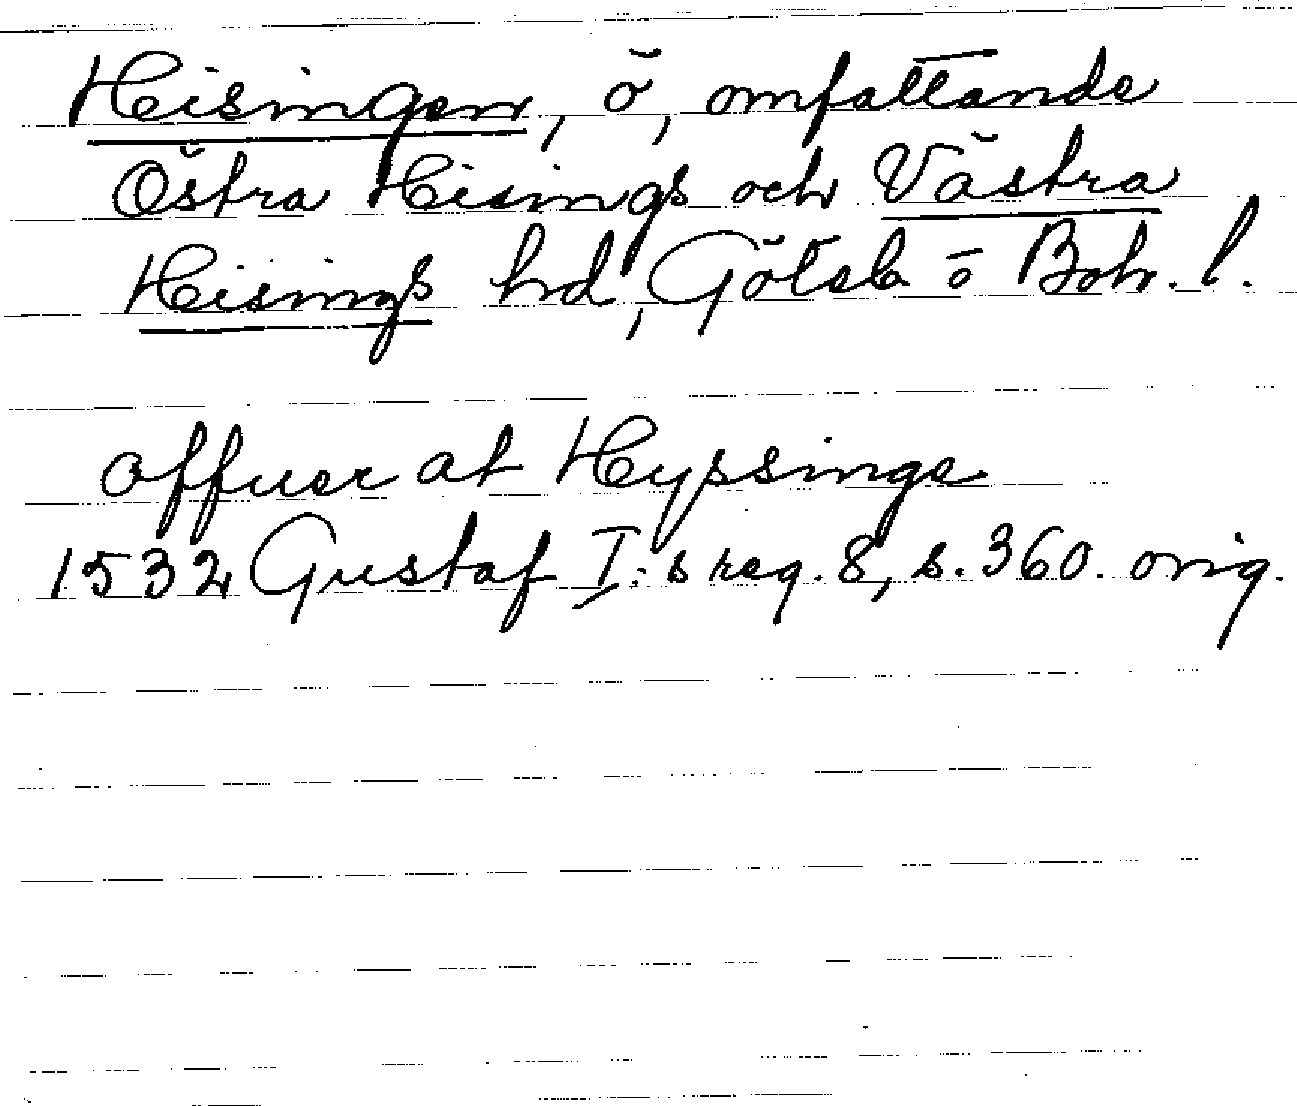 Hisingen, ö, omfattande
Östra Hisings och Västra
Hisings hd, Götab ö Boh. l.
offuer at Hyssinge
1532 Gustaf I:s reg. 8, s. 360. orig.